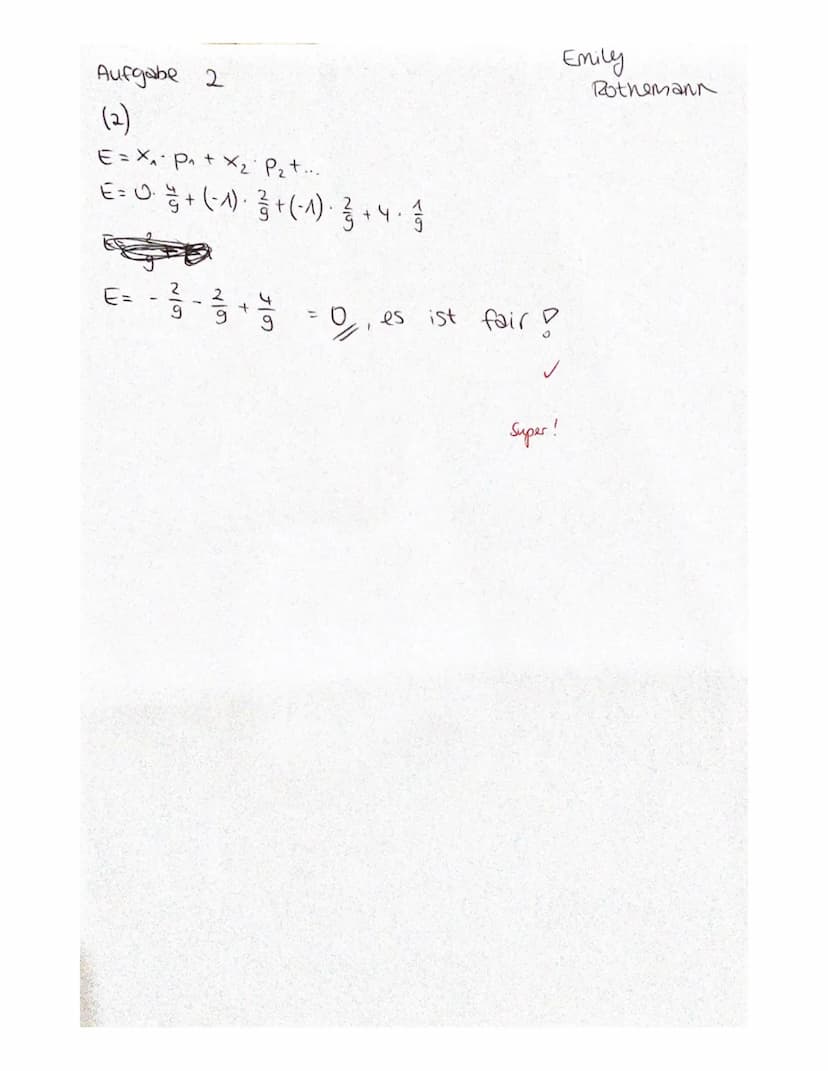 Emily
Rothemann
Aufgabe 2
(2)
E = x₁· p₁ + x₂· p₂ + ...
E = 0· 4/9 + (-1)· 2/9 + (-1)· 2/9 + 4· 1/9
E = - 2/9 - 2/9 + 4/9 = 0, es ist fair!
✓
Super!